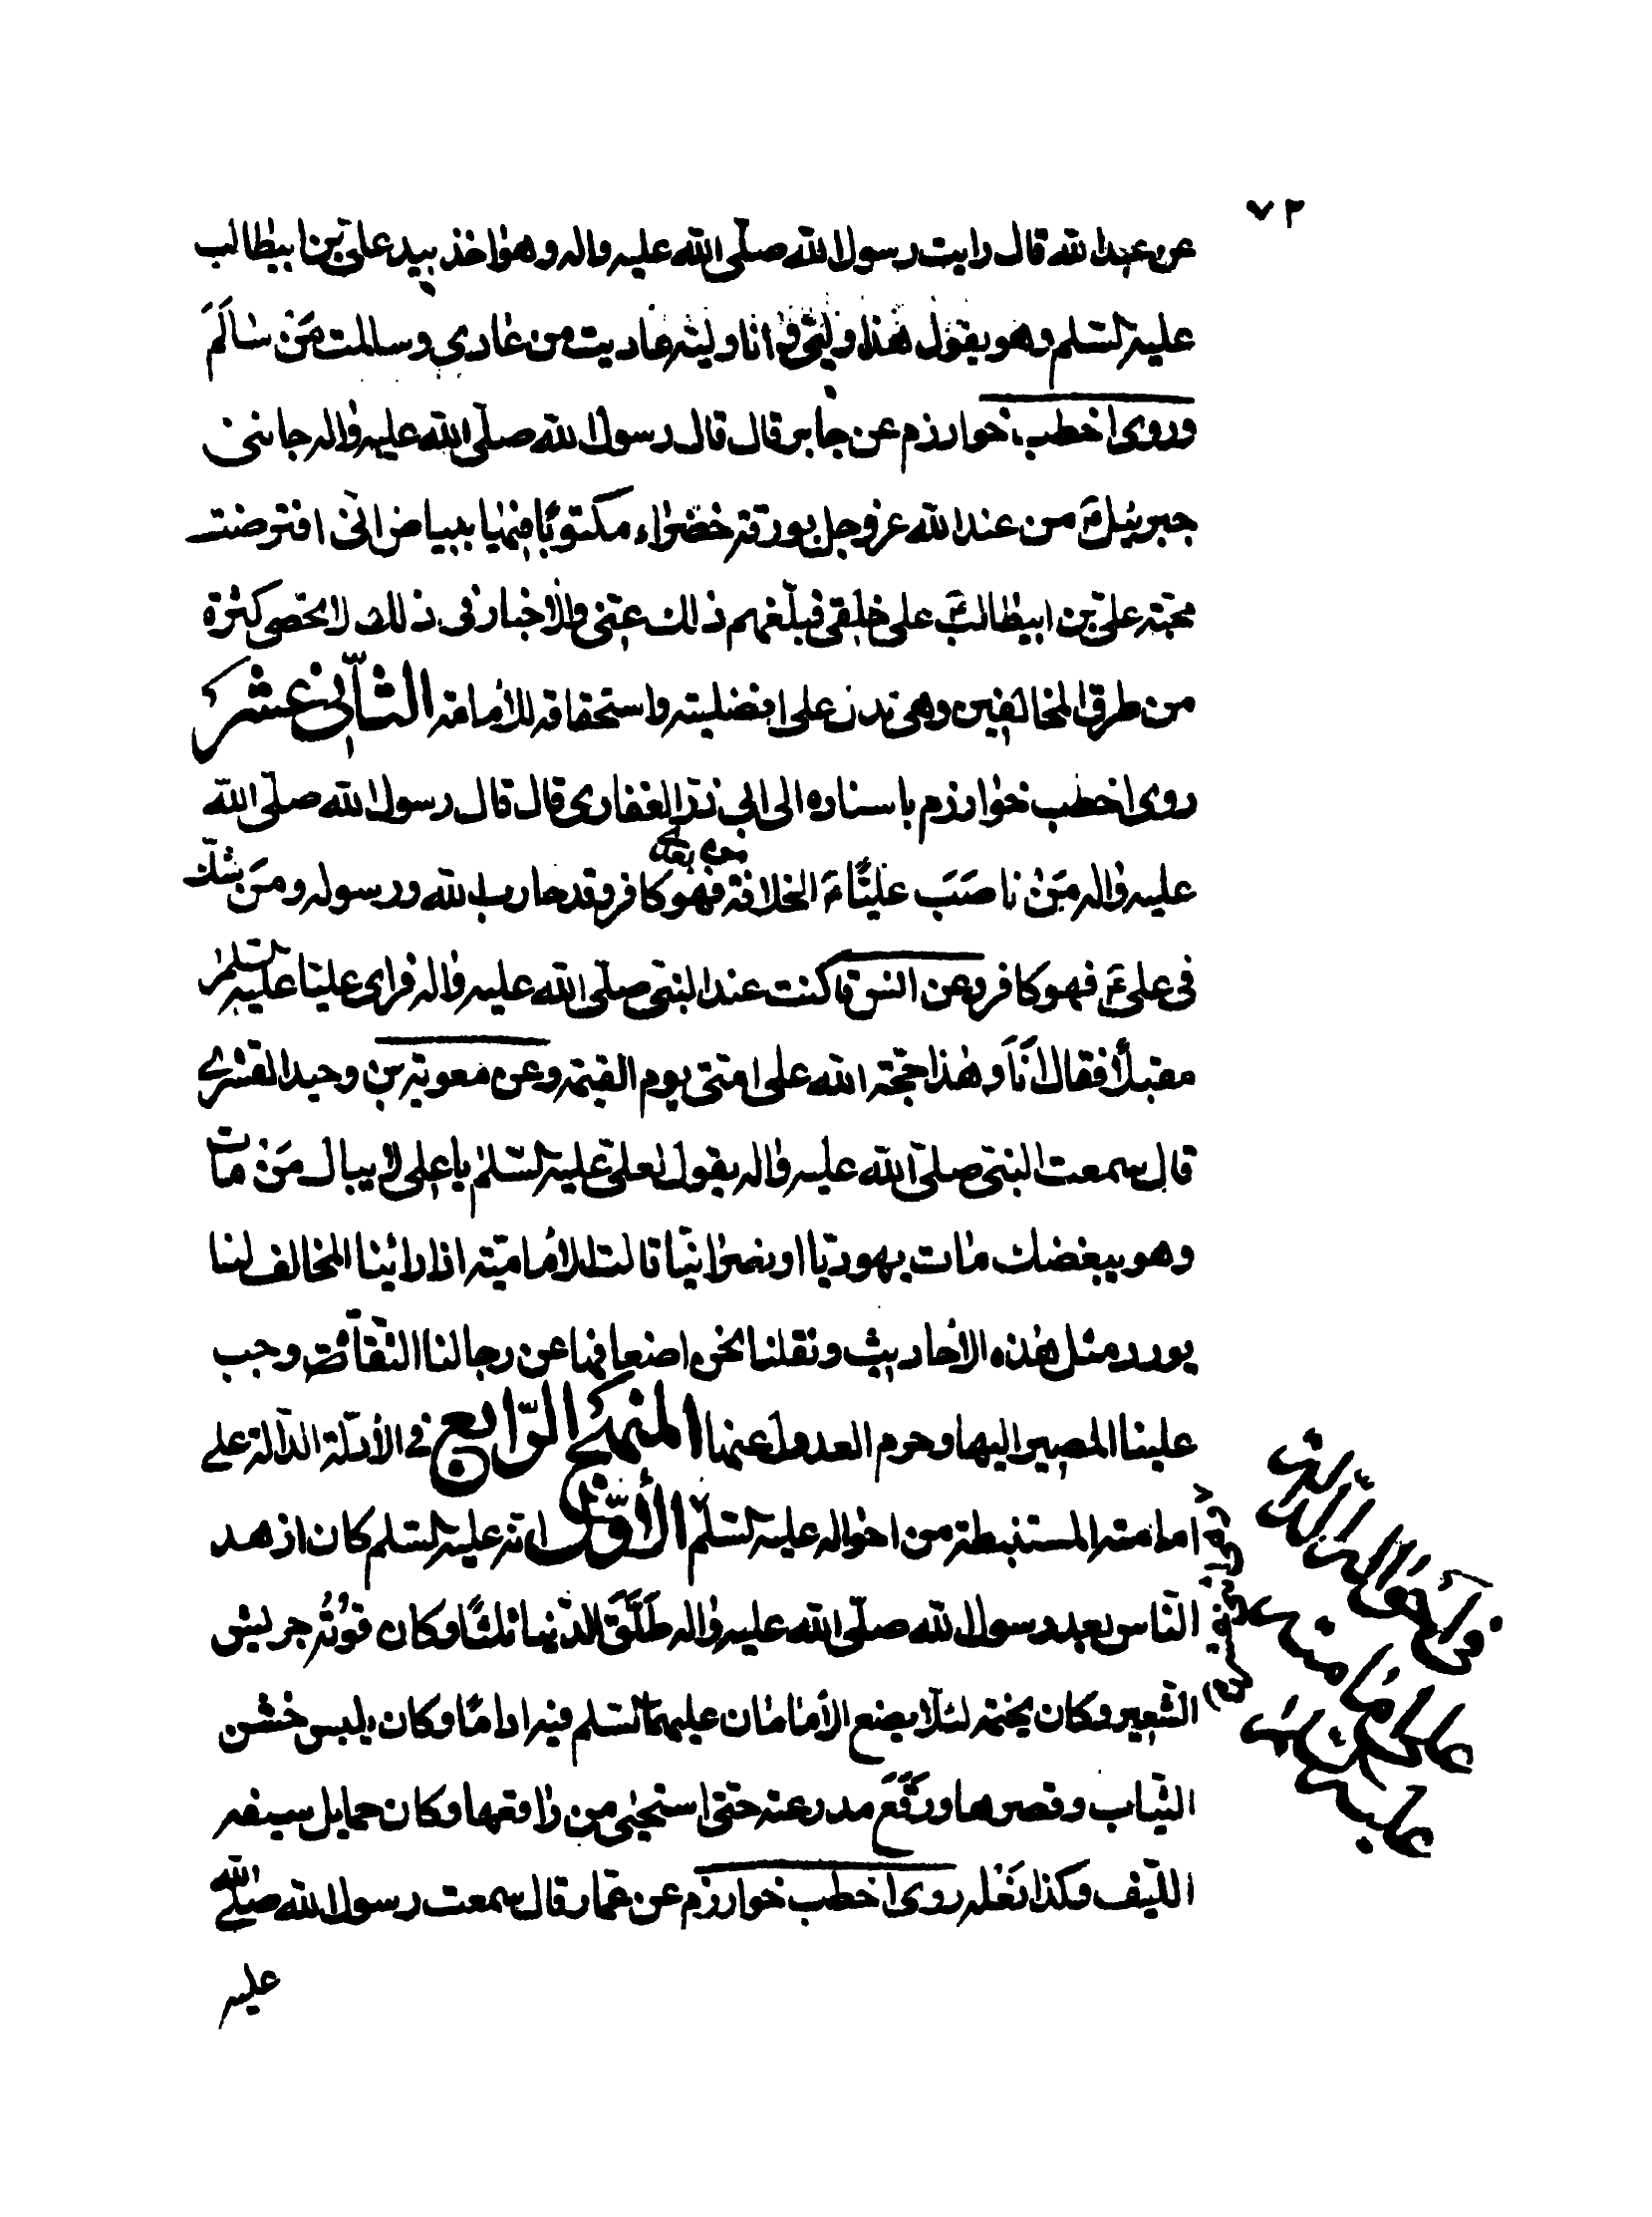 ٧٢
عن عبد الله قال رايت رسول الله صلّى الله عليه واله وهو اخذ بيد علىّ بن ابيطالب
عليه السّلم وهو يقول هذا وليّى وانا وليّه عاديت من عادى وسالمت مَنْ سالَمَ
وروى اخطب خوارزم عن جابر قال قال رسول الله صلّى الله عليه واله جاءنى
جبرئيل ع من عند الله عز وجل بورقة خضراء مكتوبًا فيها ببياض انّى افترضت
محبّة علىّ بن ابيطالب ع على خلقى فبلّغهم ذلك عنّى والاخبار فى ذلك لا تحصى كثرة
من طرق المخالفين وهى تدل على افضليته واستحقاقه للامامة الثّانى عشر
روى اخطب خوارزم باسناده الى ابى ذرّ الغفارى قال قال رسول الله صلّى الله
عليه واله مَنْ ناصَبَ عليًّا ع الخلافة فهو كافر وقد حارب الله ورسوله ومَن شكّ
من بعدى
فى علىّ ع فهو كافر وعن انس قا كنت عند النبىّ صلّى الله عليه واله فراى عليّا عليه السّلم
مقبلًا فقال اَنَا وهذا حجّة الله على امّتى يوم القيمة وعن معوية بن وحيد القشرى
قال سمعت النبىّ صلّى الله عليه واله يقول لعلىّ عليه السّلم يا على لا يبال مَنْ مات
وهو يبغضك مات يهوديّا او نصرانيّا قالت الاماميّة اذا راينا المخالف لنا
يورد مثل هذه الاحاديث ونقلنا نحن اضعافها عن رجالنا الثّقات وجب
علينا المصير اليها وحرم العدول عنها المنهج الرّابع فى الأدلّة الدّالة على
امامته المستنبطة من احواله عليه السّلم الأوّل انّه عليه السّلم كان ازهد
النّاس بعد رسول الله صلّى الله عليه واله طَلَّقَ الدّنيا ثلثًا وكان قوتُه جريش
الشّعير وكان يختمه لئلّا يضع الامامان عليهما السّلم فيه ادامًا وكان يلبس خشن
الثّياب وقصرها ورَقَّعَ مدرعته حتّى استحيى من راقعها وكان حمايل سيفه
اللّيف وكذا نَعْله روى اخطب خوارزم عن عمّار قال سمعت رسول الله صلّى الله
عليه